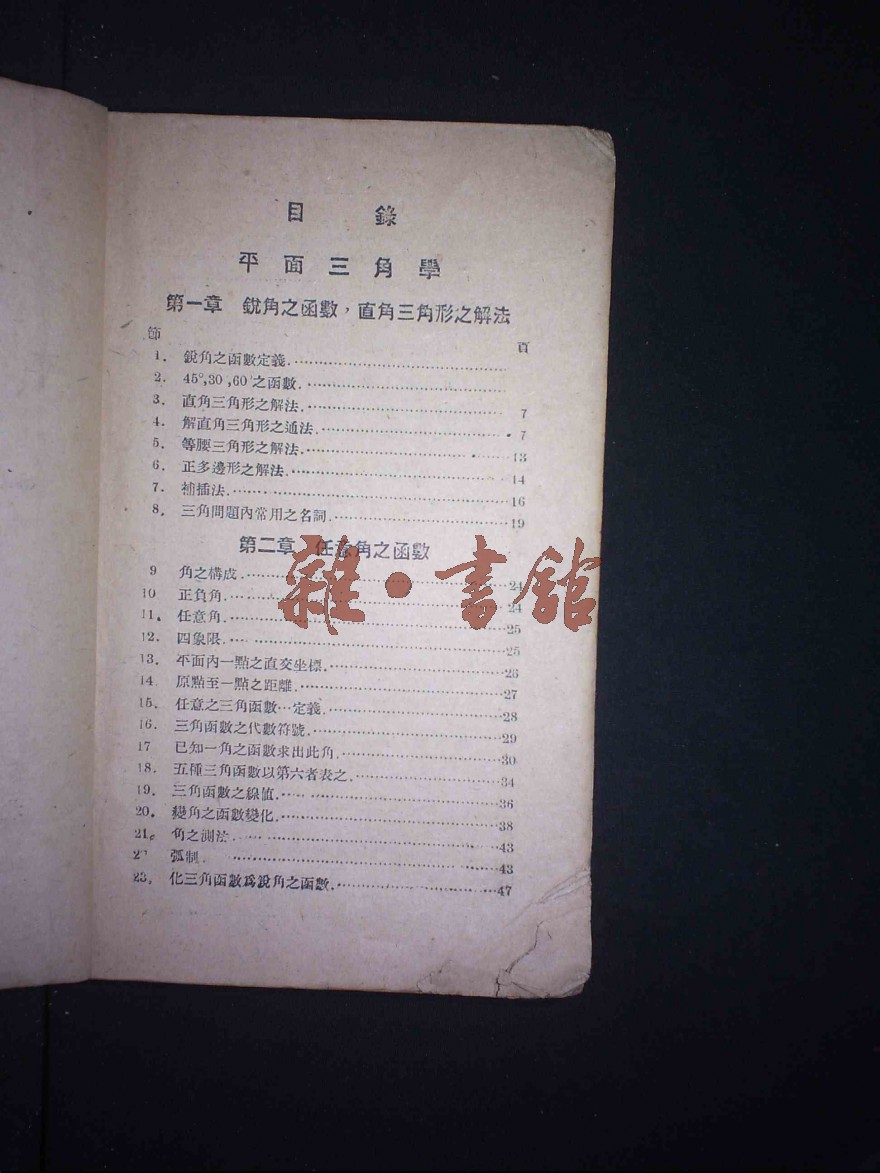 目 錄
平面三角學
第一章 銳角之函數,直角三角形之解法
節 頁
1. 鋭角之函數定義.
2. 45°,30 ,60°之函數.
3. 直角三角形之解法. 7
4. 解直角三角形之通法. 7
5. 等腰三角形之解法. 13
6. 正多邊形之解法. 14
7. 補插法. 16
8. 三角問題內常用之名詞. 19
第二章 任意角之函數
9 角之構成. 24
10 正負角. 24
11. 任意角. 25
12. 四象限. 25
13. 平面內一點之直交坐標. 26
14 原點至一點之距離. 27
15. 任意之三角函數…定義. 28
16. 三角函數之代數符號. 29
17 已知一角之函數求出此角. 30
18. 五種三角函數以第六者表之. 34
19. 三角函數之線值. 36
20. 變角之函數變化. 38
21. 角之測法. 43
2 弧制. 43
23. 化三角函數爲銳角之函數. 47
雜·書館